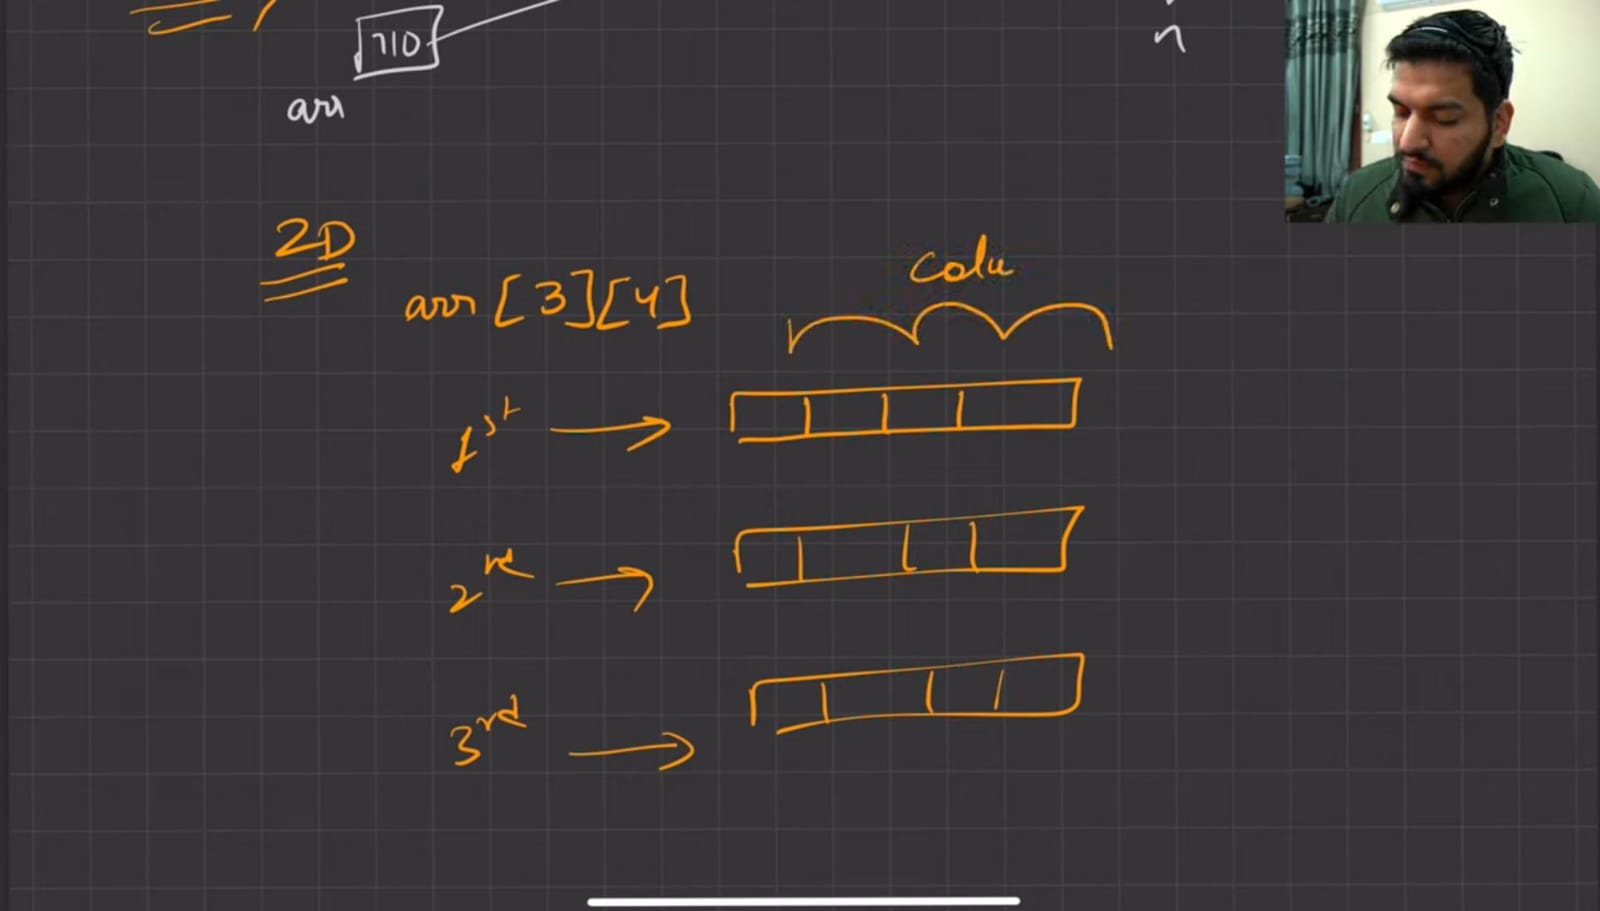 710
n
arr
2D
arr [3][4]
Colu
1st
2rd
3rd